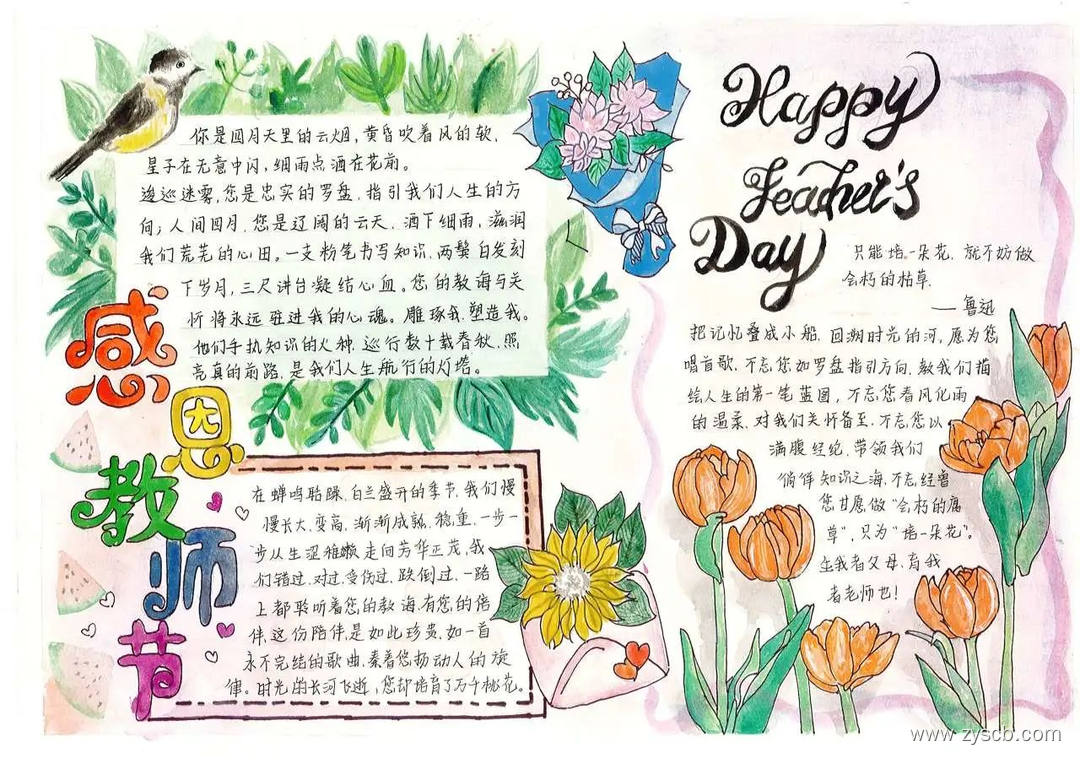 你是四月天里的云烟，黄昏吹着风的软，
星子在无意中闪，细雨点洒在花前。
逡巡迷雾，您是忠实的罗盘，指引我们人生的方
向；人间四月，您是辽阔的云天，洒下细雨，滋润
我们荒芜的心田。一支粉笔书写知识，两鬓白发刻
下岁月，三尺讲台凝结心血。您的教诲与关
怀将永远驻进我的心魂。雕琢我，塑造我。
他们手执知识的火种，巡行数十载春秋，照
亮真的前路，是我们人生航行的灯塔。
感
恩
教
师
节
在蝉鸣聒噪，白兰盛开的季节，我们慢
慢长大，变高，渐渐成熟，稳重，一步一
步从生涩稚嫩走向芳华正茂，我
们错过，对过，受伤过，跌倒过，一路
上都聆听着您的教诲，有您的陪
伴，这份陪伴，是如此珍贵，如一首
永不完结的歌曲，奏着您扬动人的旋
律。时光的长河飞逝，您却培育了万千桃花。
Happy
Teacher's
Day
只能培一朵花，就不妨做
会朽的枯草。
——鲁迅
把记忆叠成小船，回溯时光的河，愿为您
唱首歌，不忘您如罗盘指引方向，教我们描
绘人生的第一笔蓝图，不忘您春风化雨
的温柔，对我们关怀备至，不忘您以
满腹经纶，带领我们
徜徉知识之海，不忘，经曾
您甘愿做“会朽的腐
草”，只为“培一朵花”。
生我者父母，育我
者老师也！
www.zyscb.com